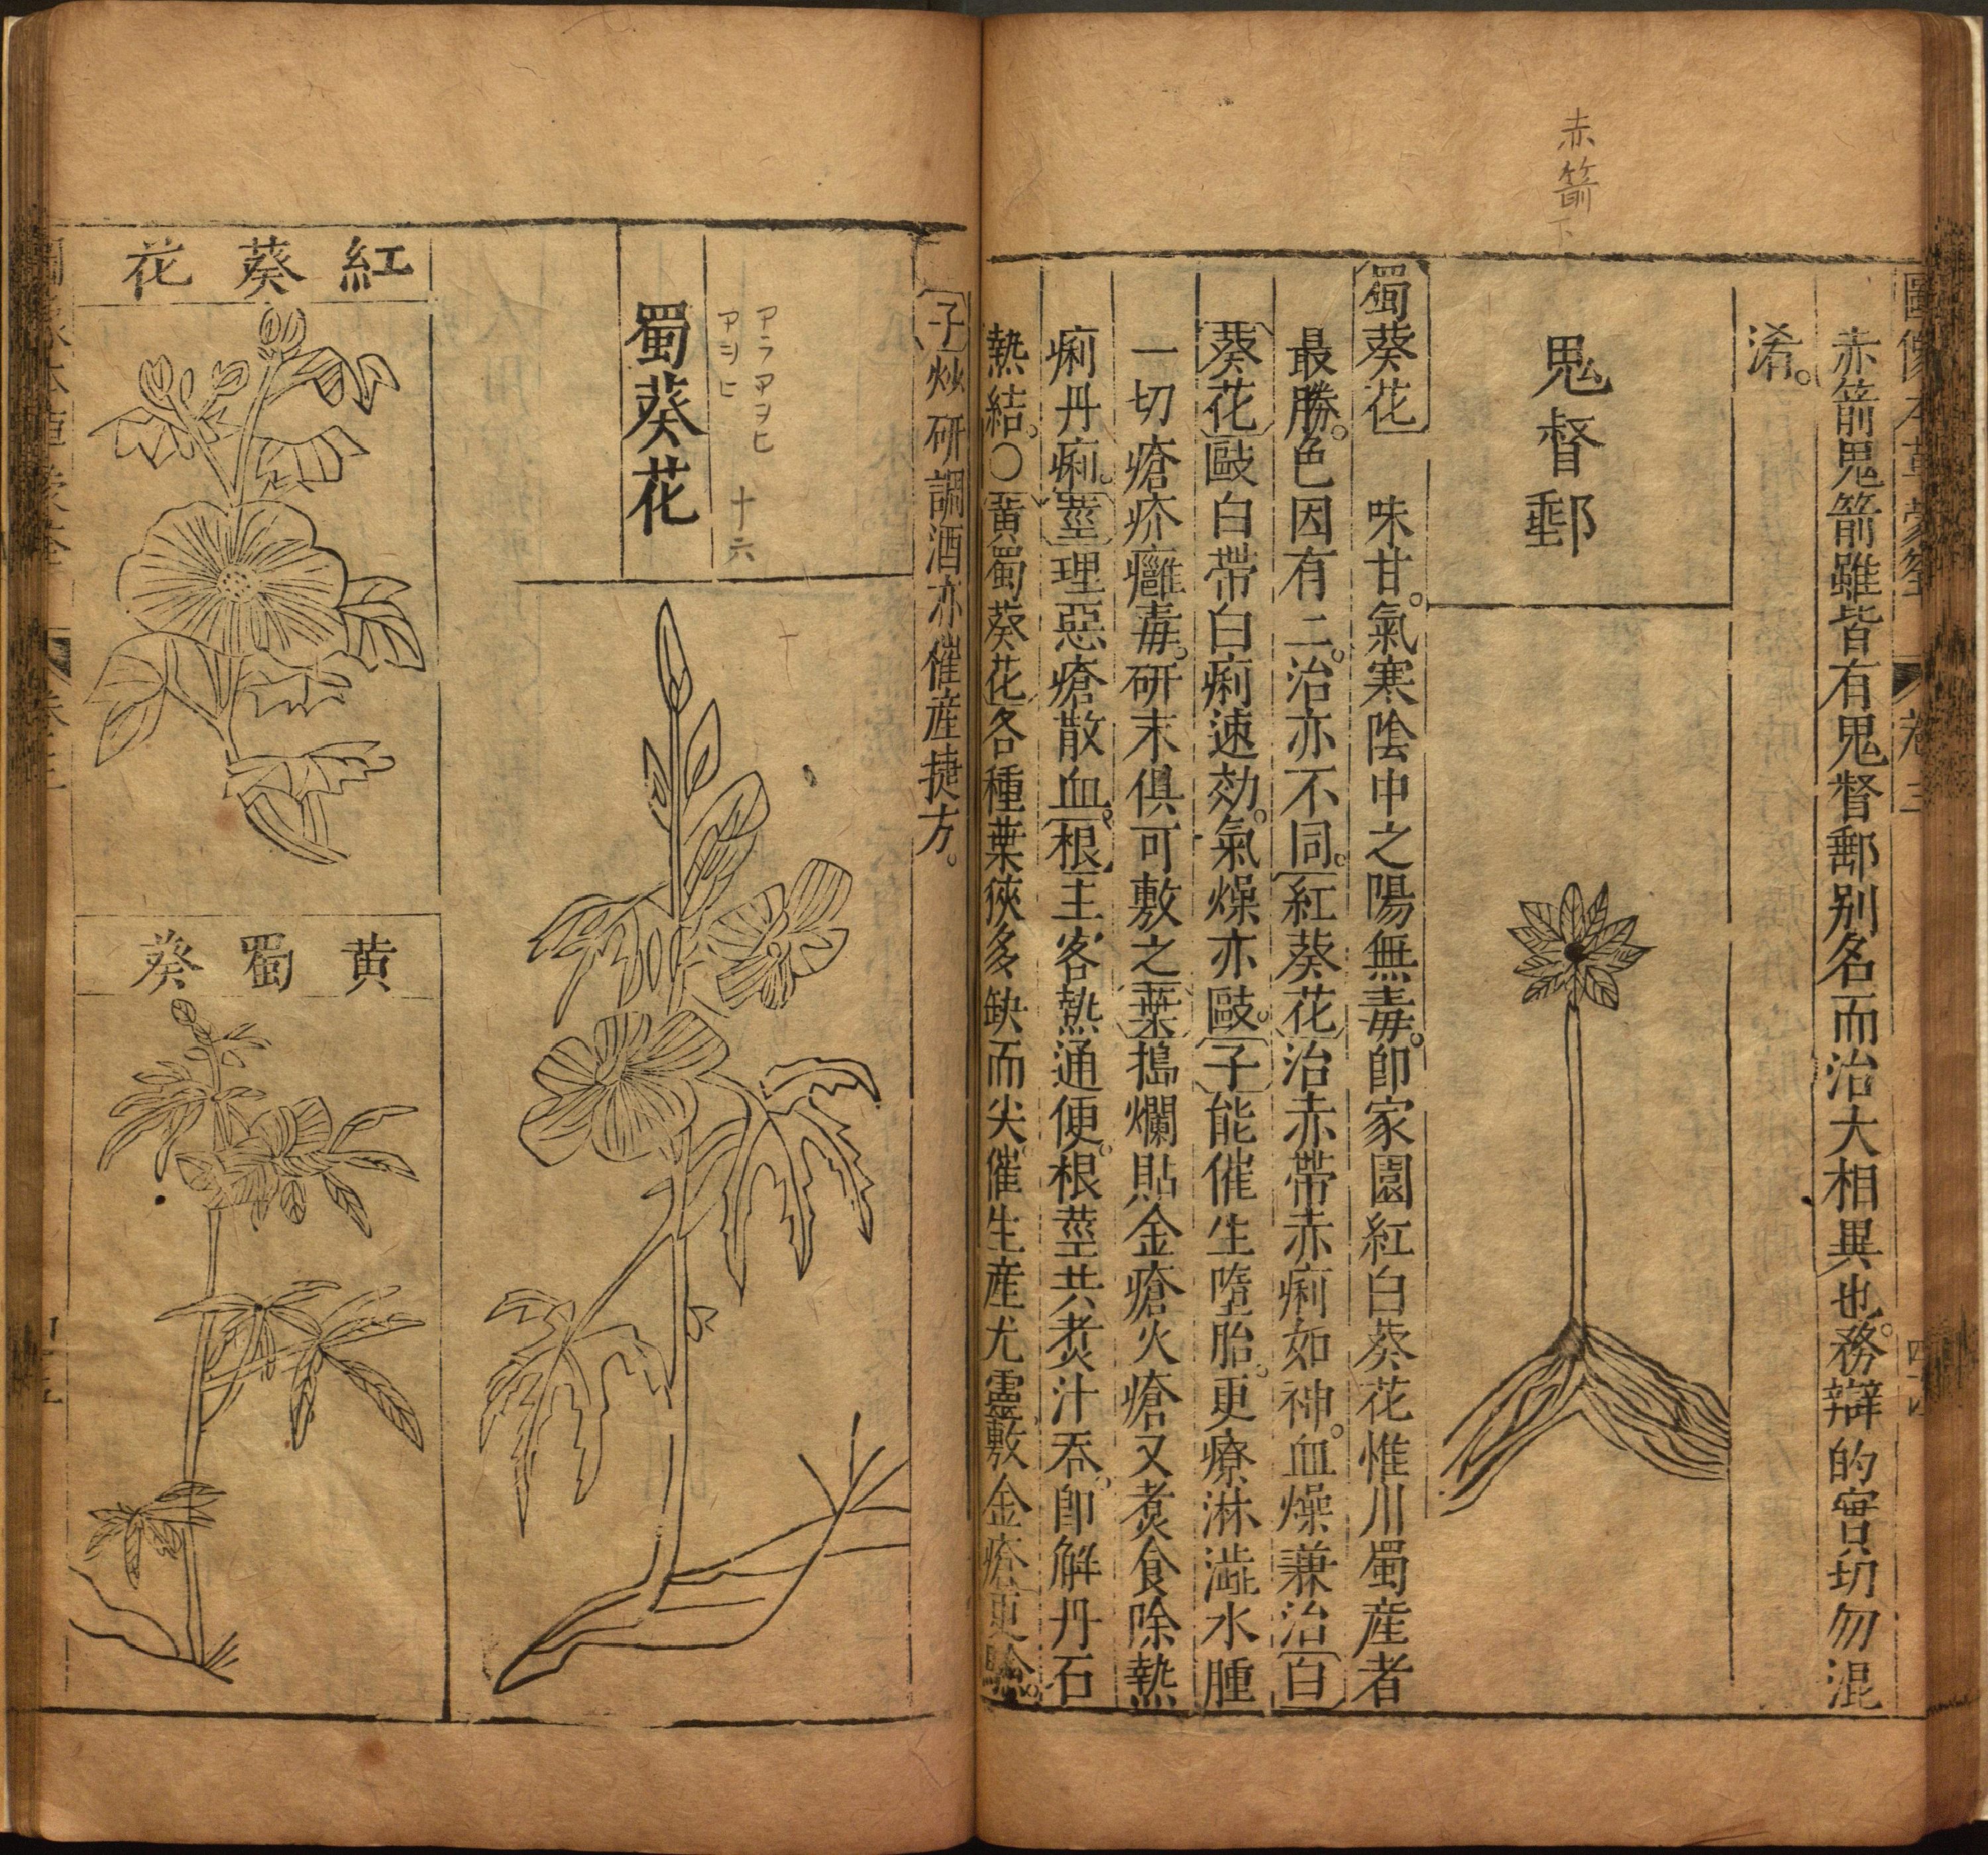 赤箭
赤箭鬼箭雖皆有鬼督郵别名而治大相異也。務辯的實切勿混
淆。
鬼督郵
蜀葵花 味甘。氣寒陰中之陽無毒。卽家園紅白葵花惟川蜀産者
最勝。色因有二。治亦不同。紅葵花治赤帶赤痢如神。血燥兼治白
葵花敺白帶白痢速効。氣燥亦敺。子能催生墮胎。更療淋澁水腫
一切瘡疥癰毒。研末俱可敷之葉搗爛貼金瘡火瘡又煮食除熱
痢丹痢。莖理惡瘡散血。根主客熱通便。根莖共煮汁吞。卽解丹石
熱結。○黃蜀葵花各種葉狹多缺而尖催生産尤靈敷金瘡更騐。
子炒研調酒亦催産捷方。
アラアヲヒ 十六
アヲヒ
蜀葵花
紅葵花
黄蜀葵